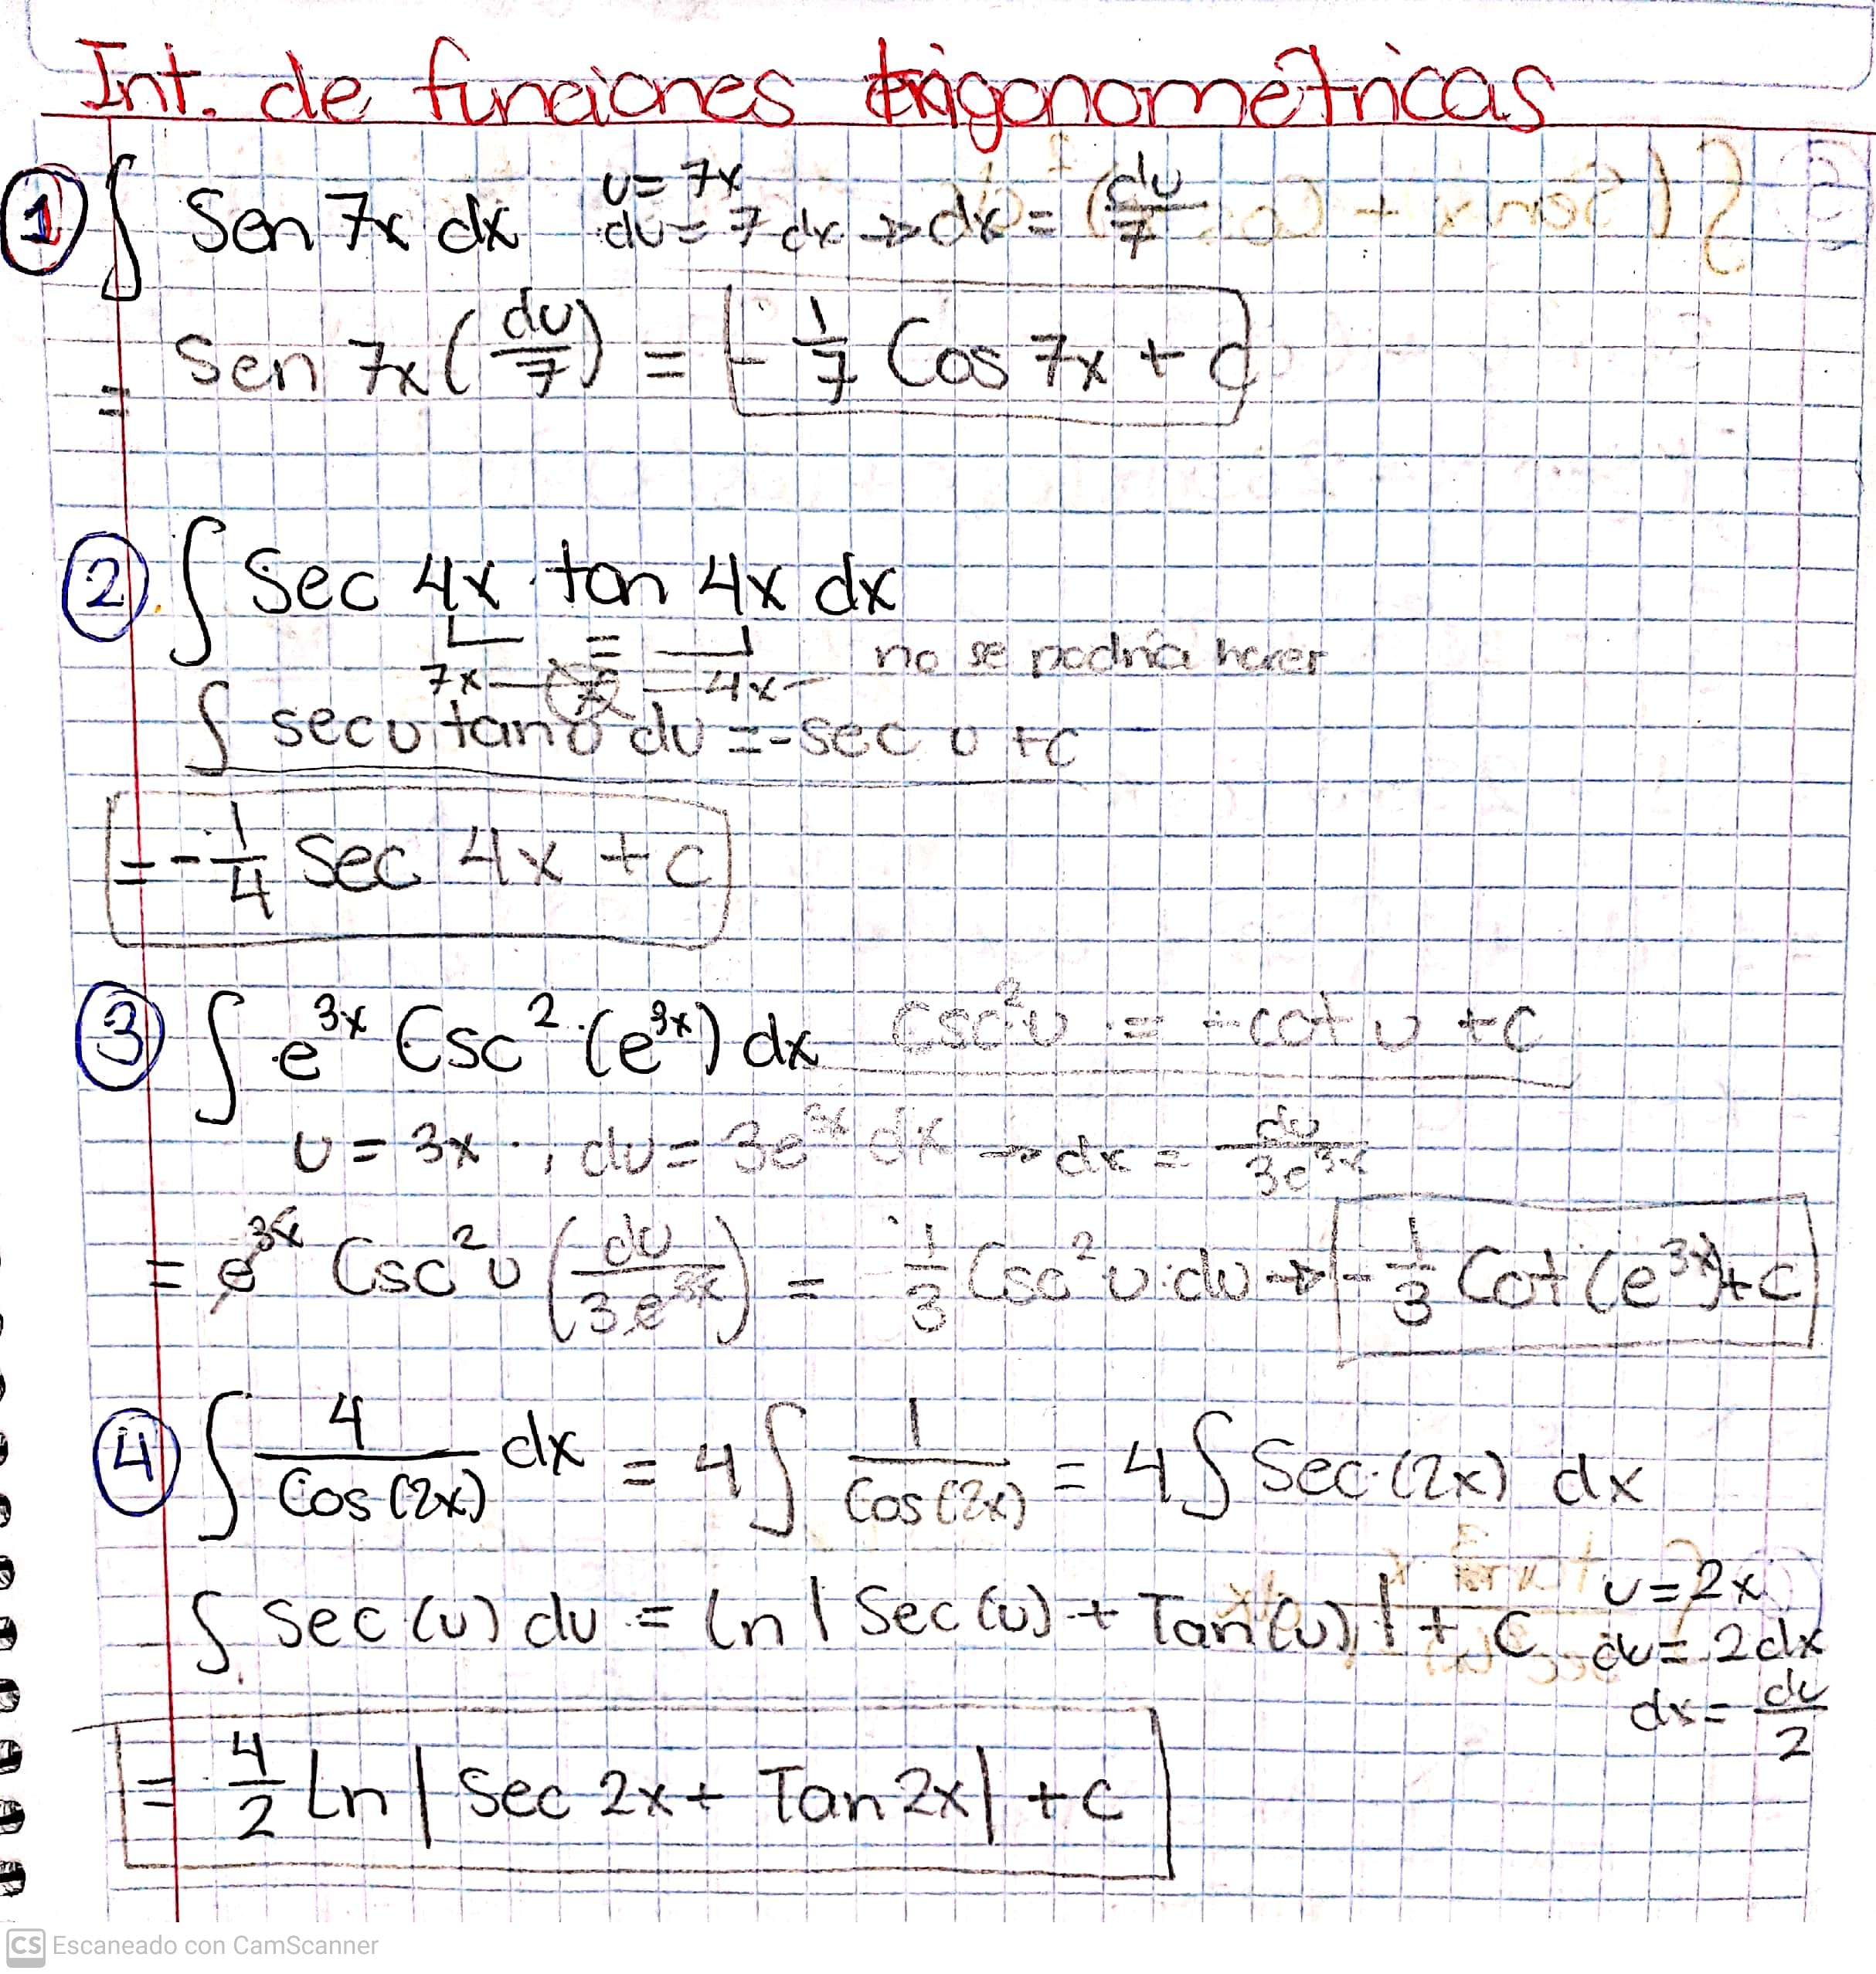 Int. de funciones trigonométricas
① ∫ Sen 7x dx u = 7x
du = 7 dx → dx = du/7
= Sen 7x (du/7) = - 1/7 Cos 7x + C
② ∫ Sec 4x tan 4x dx
7x = 4x no se podría hacer
∫ sec u tan u du = -sec u + c
= - 1/4 Sec 4x + C
③ ∫ e^3x Csc² (e^3x) dx Csc² u = -cot u + C
u = 3x , du = 3e^3x dx → dx = du/3e^3x
= e^3x Csc² u (du/3e^3x) = 1/3 Csc² u du → - 1/3 Cot (e^3x) + C
④ ∫ 4/Cos (2x) dx = 4 ∫ 1/Cos (2x) = 4 ∫ Sec (2x) dx
∫ Sec (u) du = ln | Sec (u) + Tan (u) | + C
u = 2x
du = 2dx
dx = du/2
= 4/2 Ln | Sec 2x + Tan 2x | + C
CS Escaneado con CamScanner